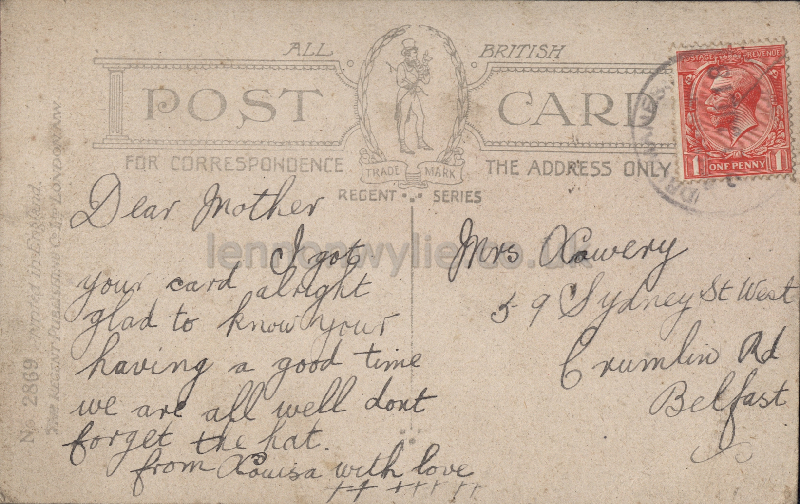 ALL BRITISH
POST CARD
FOR CORRESPONDENCE THE ADDRESS ONLY
TRADE MARK
REGENT SERIES
POSTAGE REVENUE
1 ONE PENNY 1
Dear Mother
I got
your card alright
glad to know your
having a good time
we are all well dont
forget the hat.
from Louisa with love
Mrs Lowery
59 Sydney St West
Crumlin Rd
Belfast
No 2869 Printed in England.
lennonwylie.co.uk